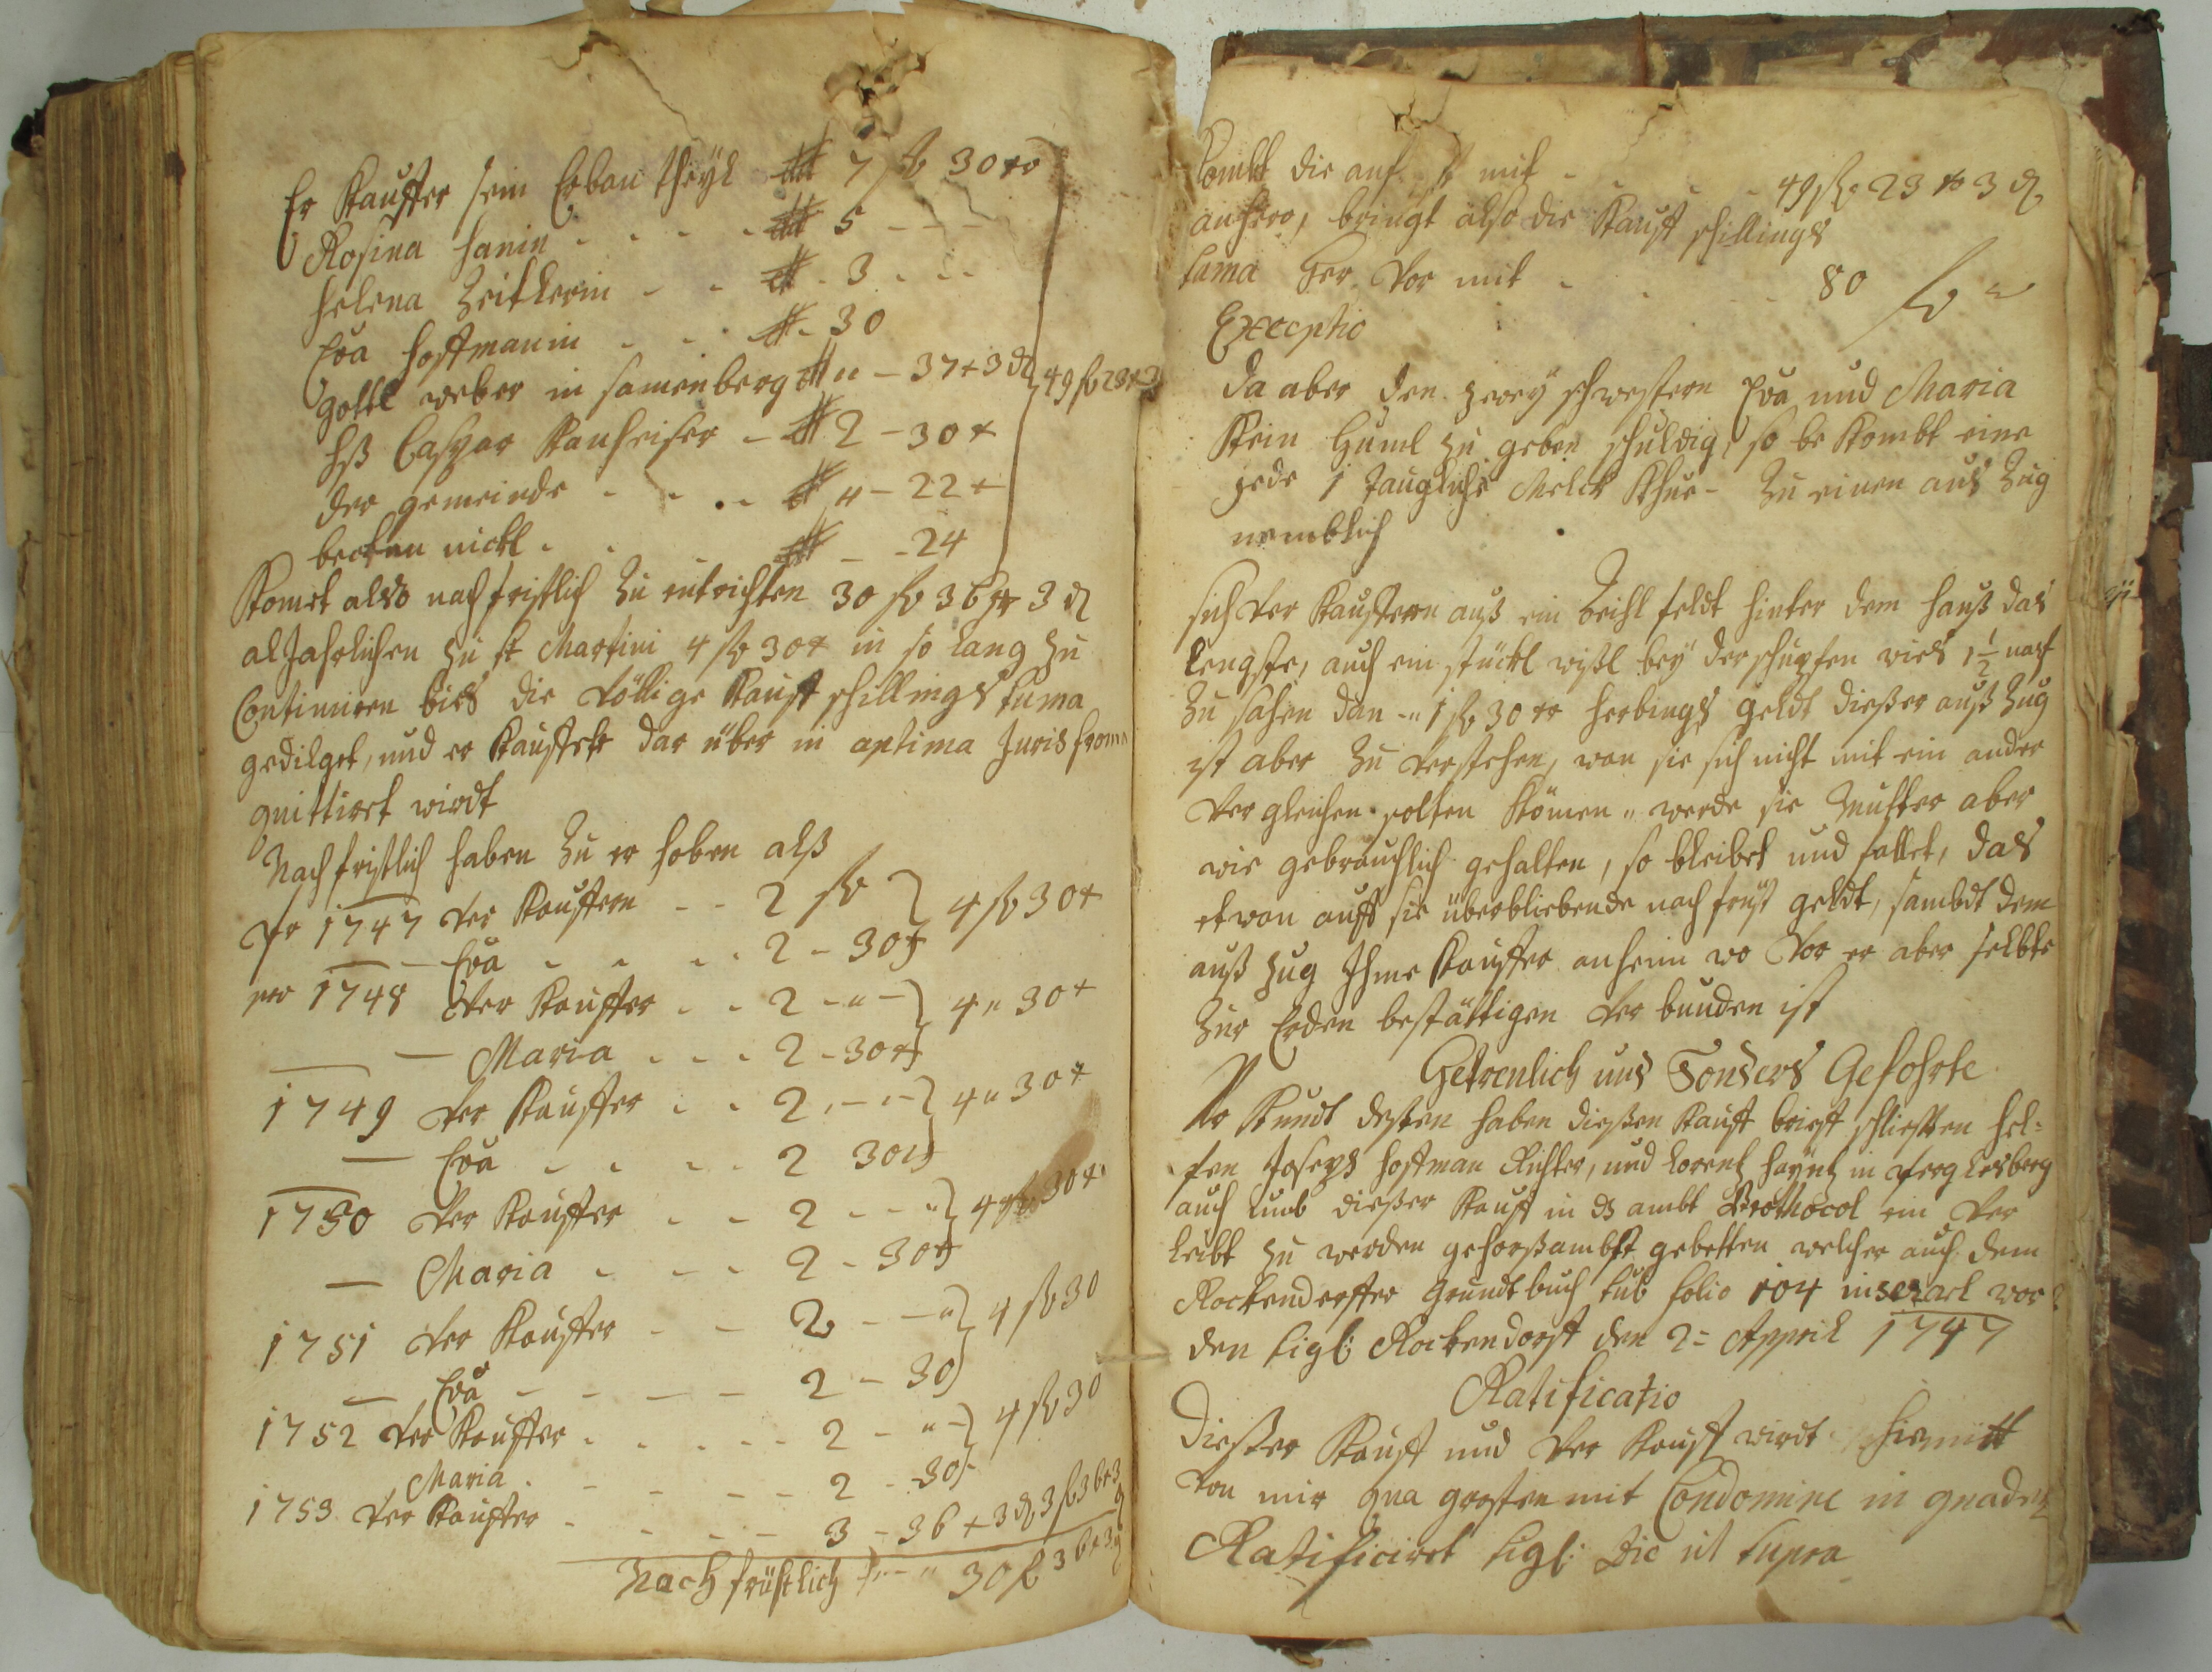 Er Kauffer sein Erban theyl 7 fl 30 xr
Rosina hanin - - - - 5 - - -
Helena Zeitlerin - - 3 - - -
Eva Hoffmanin - - - 30
Gottl weber in samenberg " - 37 x 3 d } 49 fl 23 x 3
Hß Caspar Kanheiser - 2 - 30 x
der gemeinde - - - - " - 22 x
becken nickl - - - - 24
Komet also nachfristlich zu entrichten 30 fl 36 xr 3 d
al Jahrlichen zu st Martini 4 fl 30 x in so lang zu
Continuiren bies die völlige Kauff schillings suma
gedilget, und er Kauffer dar über in optima Juris from
quittiret wirdt
Nachfristlich haben zu er heben alß
pr 1747 Ver Kauffern - - 2 fl } 4 fl 30 x
- Eva - - - - 2 - 30 x
pro 1748 Ver Kauffer - - 2 - " - } 4 " 30 x
- Maria - - - 2 - 30 x
1749 Ver Kauffer - - 2 - - - } 4 " 30 x
- Eva - - - - 2 30 x
1750 Ver Kauffer - - 2 - - " } 4 fl 30 x
- Maria - - - 2 - 30 x
1751 Ver Kauffer - - 2 - - " } 4 fl 30
- Eva - - - - 2 - 30
1752 Ver Kauffer - - - - - 2 - " - } 4 fl 30
Maria - - - - - 2 - 30
1753 Ver Kauffer - - - - - 3 - 36 x 3 d 3 fl 36 x 3 d
Nach früstlich - - " 30 fl 36 x 3 d
Kombt die auf mit - - - - 49 fl 23 xr 3 d
anhero, bringt also die Kauff schillings
suma Her Vor mit - - - 80 fl "
Exceptio
Da aber den zwey schwestern Eva und Maria
Kein Huml zu geben schuldig, so be Kombt eine
jede 1 Taugliche Melck Khue - zu einen aus zug
nemblich
sich Ver Kauffern auß ein Beihl feldt hinter dem hauß das
Lengste, auch ein stückl wißl bey der schupfen wies 1 1/2 nach
zu sahen dan - " 1 fl 30 xr herbings geldt dießer auß zug
ist aber zu verstehen, wan sie sich nicht mit ein ander
Ver gleichen solten Kömen " werde sie Mutter aber
wie gebräuchlich gehalten, so bleibet und fallet, das
etwan auff sie überbliebende nach frist geldt, sambdt dem
auß zug Ihme Kauffer anheim wo Vor er aber selbte
zur Erden bestättigen Ver bunden ist
Getreulich und Sonders Gefohrte
Vr Kundt deßen haben dießen Kauff brieff schliessen hel=
fen Joseph Hoffman Richter, und Lorentz Haÿntz in Berglesberg
auch umb dießer Kauff in ds ambt Prothocol ein Ver
leibt zu werden gehorßambst gebetten welcher auch dem
Rockendorffer Grundtbuch sub folio 104 inserart wor
den sigl: Rockendorff den 2= Appril 1747
Ratificatio
Dießer Kauff und Ver Kauff wirdt hiemitt
Von mir qua grosten mit Condomine in gnaden
Ratificiret sigl: Die ut supra